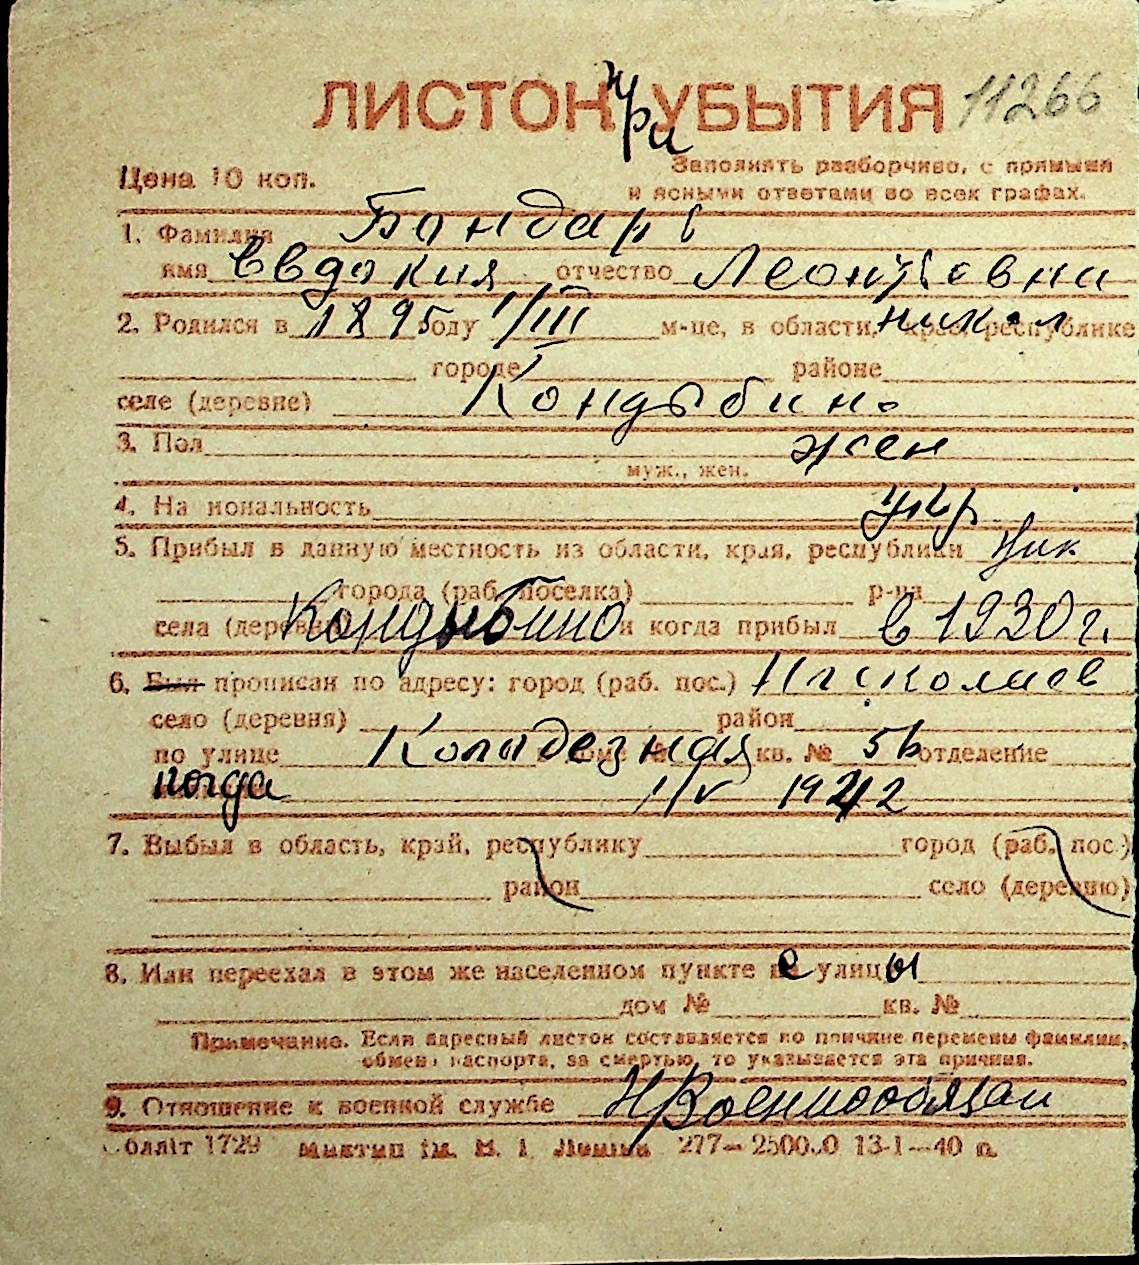 ЛИСТОК при УБЫТИЯ 11266
Цена 10 коп. Заполнять разборчиво, с прямыми
и ясными ответами во всех графах.
1. Фамилия Бондарь
имя Евдокия отчество Леонтьевна
2. Родился в 1895 году 1/III м-це, в области, крае, республике Никол
городе районе
селе (деревне) Кондыбино
3. Пол жен
муж., жен.
4. Национальность укр
5. Прибыл в данную местность из области, края, республики Ник
города (раб. поселка) р-на
села (деревни) Кондыбино и когда прибыл в 1930 г.
6. Был прописан по адресу: город (раб. пос.) Николаев
село (деревня) район
по улице Колодезная кв. № 5б отделение
когда 1/V 1942
7. Выбыл в область, край, республику город (раб. пос.)
район село (деревню)
8. Или переехал в этом же населенном пункте с улицы
дом № кв. №
Примечание. Если адресный листок составляется по причине перемены фамилии,
обмена паспорта, за смертью, то указывается эта причина.
9. Отношение к военной службе Н/Военнообязан
Обліт 1729 ім. В. І. Леніна 277— 13-1—40 п.